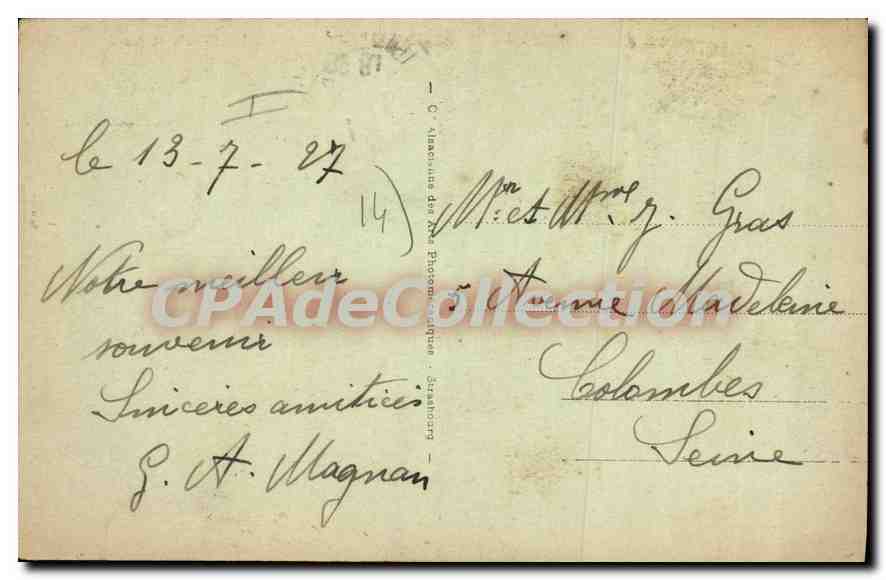 I
le 13-7-27
14)
Notre meilleur
souvenir
Sincères amitiés
G. A. Magnan
— Cie Alsacienne des Arts Photomécaniques - Strasbourg —
Mr et Mme J. Gras
5 Avenue Madeleine
Colombes
Seine
CPAdeCollection.com